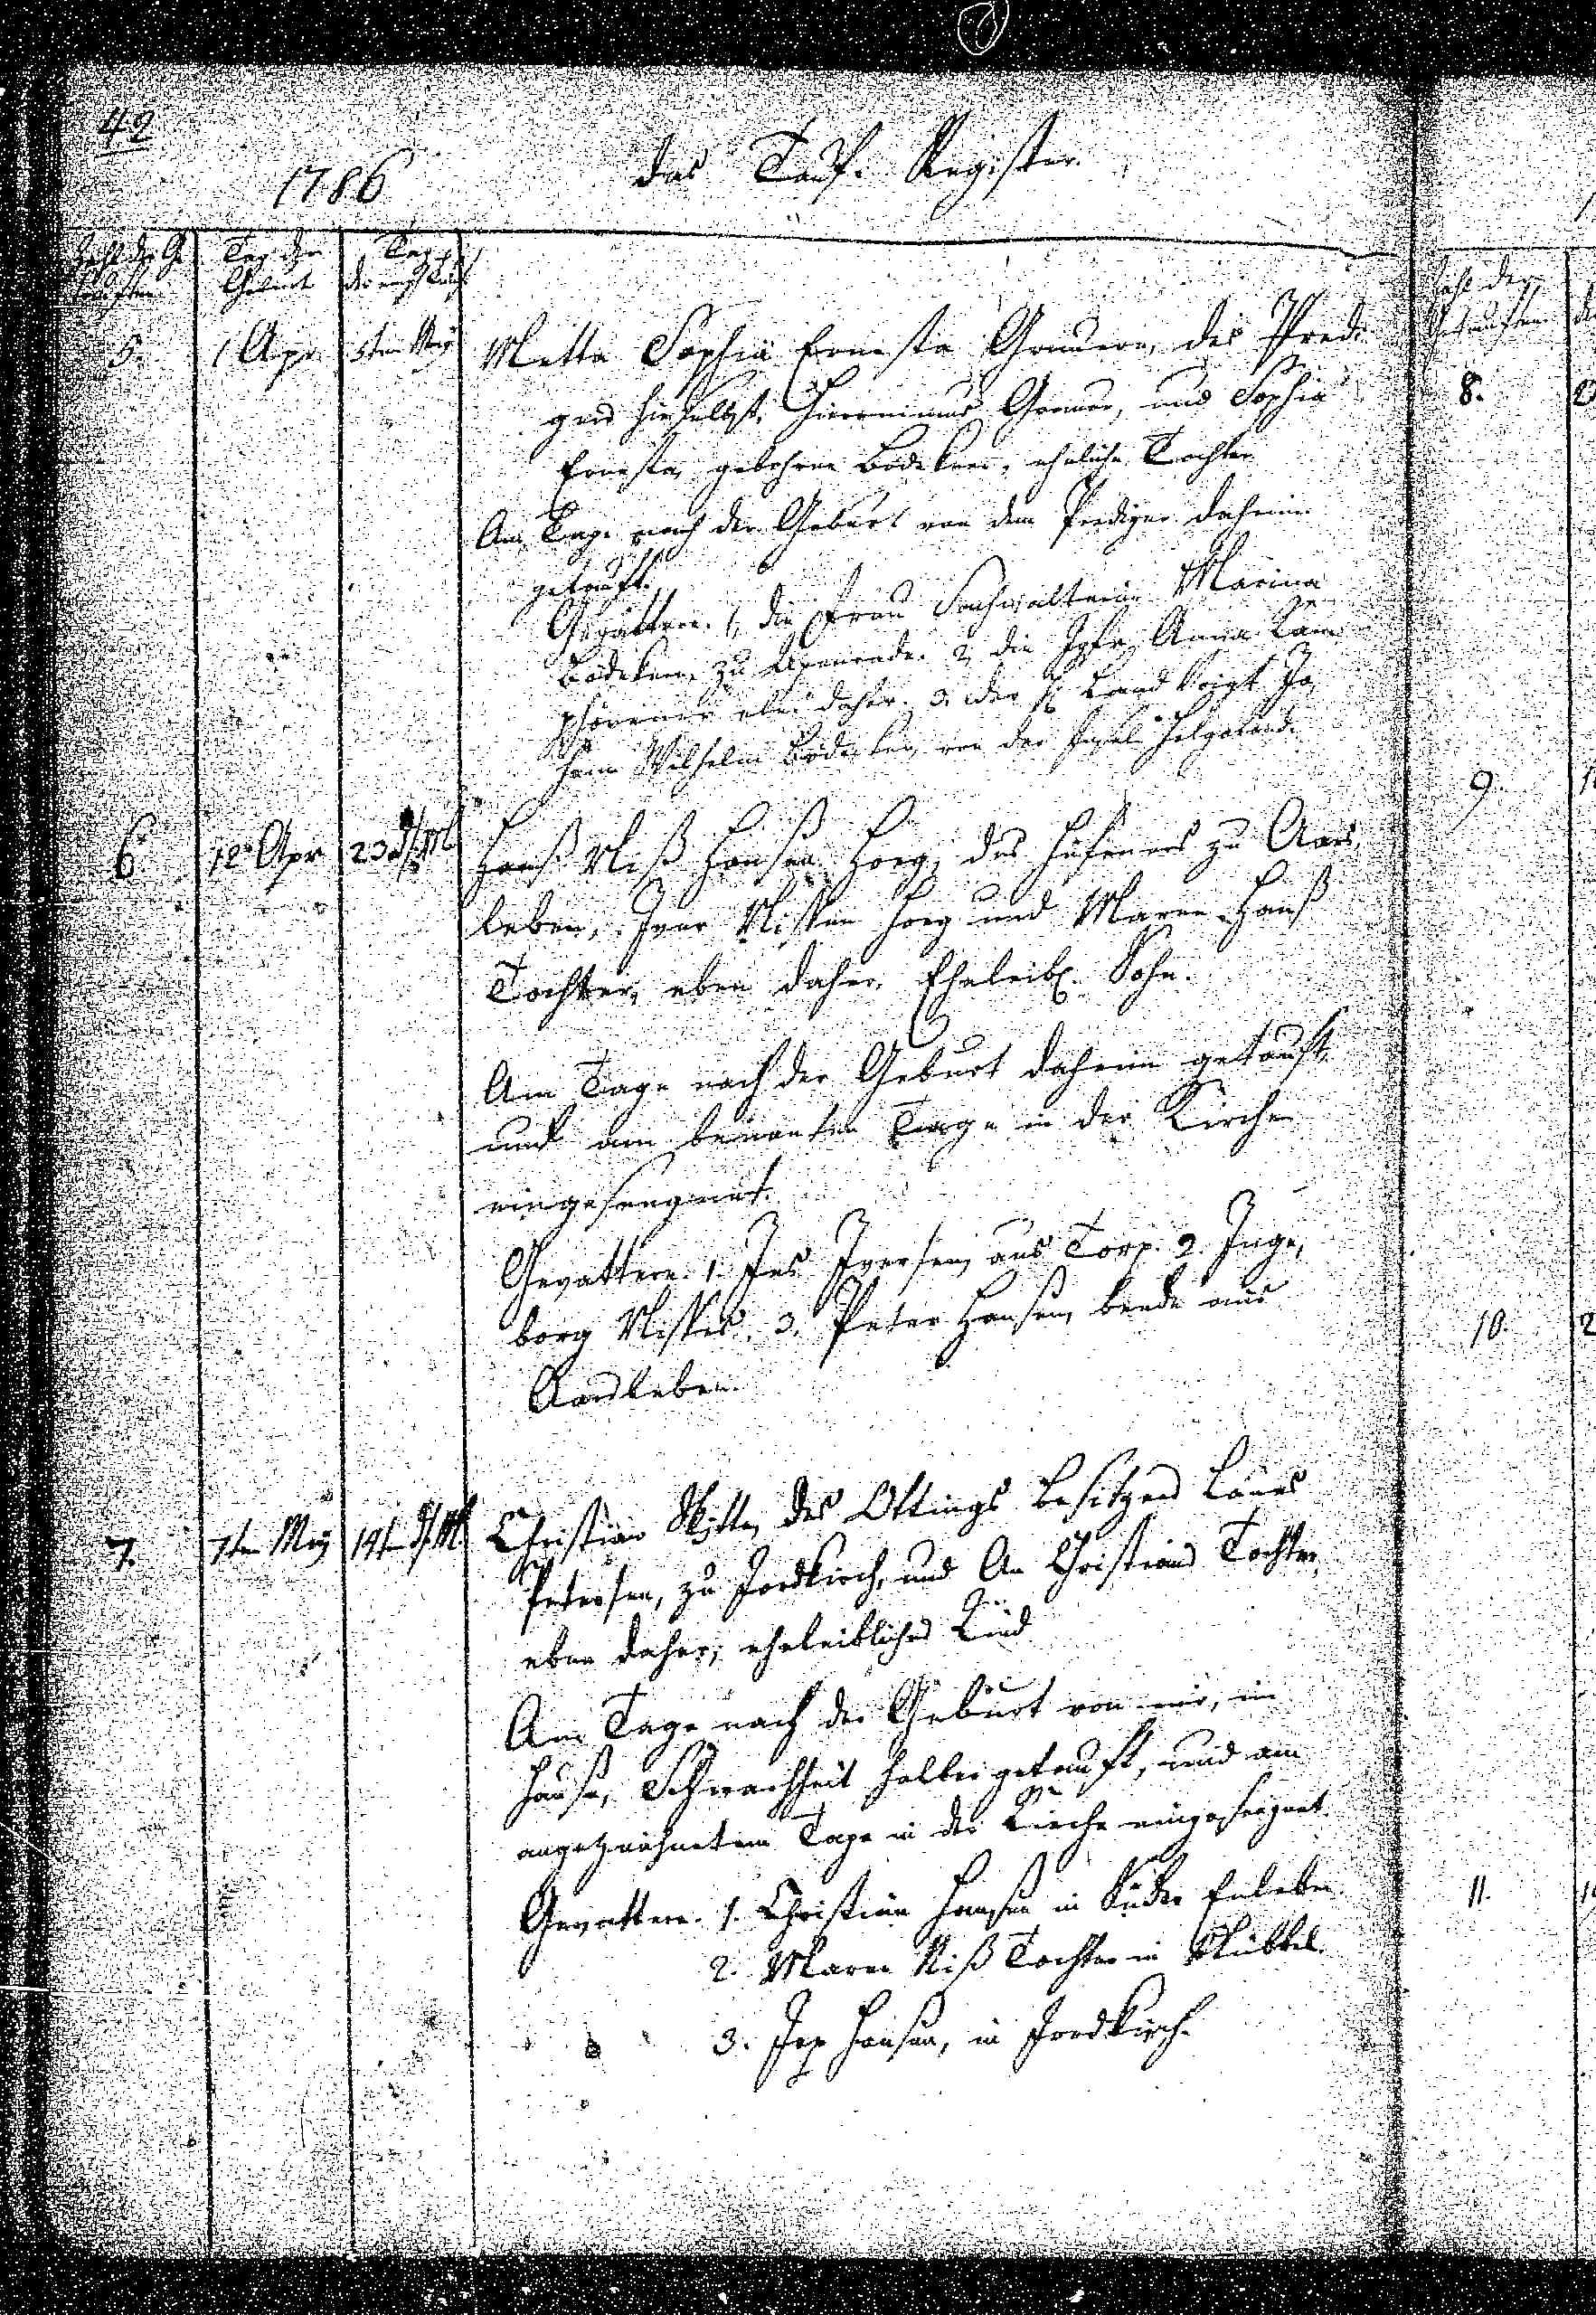 42
1786
das Tauf. Register.
Zahl der Ge
tauften.
Tag der
Geburt
Tag
der
5.
1 Apr.
5ten May
Metta Sophia Ernesta Gruuern, des Predi
gers hieselbst, Hieronimus Gruuer, und Sophia
Ernesta, gebohrne Bödeker, eheliche Tochter
Am Tage nach der Geburt von dem Prediger daheim
getauft.
Gevattern. 1, die Frau Marina
Bödeker, zu Apenrade. 2, die Jgfr. Anna
eben daher. 3. der H. Land Voigt Jo,
hann Wilhelm Bödeker, von der Insel Helgoland.
6.
12 Apr
23 d. M.
Hanß Niß Hansen Hoeg, des Hufeners zu Aars,
leben, Iver Nissen Hoeg und Maren Hanß
Tochter, eben daher, Eheleibl. Sohn.
Am Tage nach der Geburt daheim getauft,
und am benanten Tage in der Kirche
eingesegnet.
Gevattern. 1. Jes Iversen, aus Torp. 2. Inge,
borg Nisses. 3. Peter Hansen, beede aus
Aarsleben.
7.
7ten May
14ten d. M.
Christian Mitte, des Ottings Besitzers Laues
Petersen, zu Jordkirch, und An Christians Tochter,
eben daher, eheleibliches Kind
Am Tage nach der Geburt von mir, im
Hause, Schwachheit halber getauft, und am
angezeichnetem Tage in der Kirche eingesegnet.
Gevattern. 1. Christian Hansen in Süder Enleben.
2. Maren Niß Tochter in Nübbel.
3. Jep Hansen, in Jordkirch.
Zahl der
Getauften
8.
9.
10.
11.